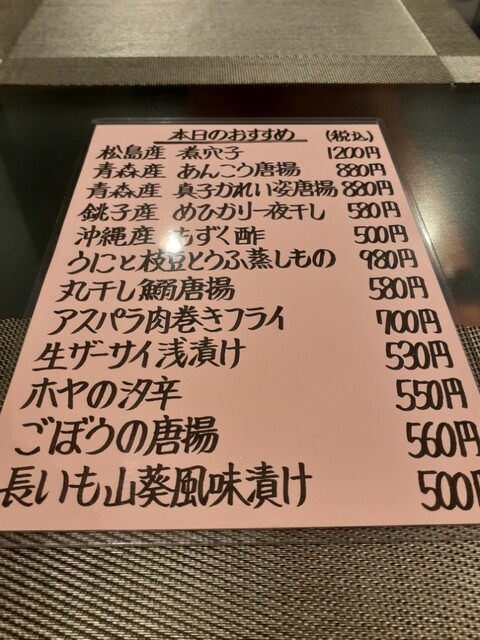 本日のおすすめ (税込)
松島産 煮穴子 1200円
青森産 あんこう唐揚 880円
青森産 真子がれい姿唐揚 880円
銚子産 めひかり一夜干し 580円
沖縄産 もずく酢 500円
うにと枝豆とうふ蒸しもの 980円
丸干し鰯唐揚 580円
アスパラ肉巻きフライ 700円
生ザーサイ浅漬け 530円
ホヤの汐辛 550円
ごぼうの唐揚 560円
長いも山葵風味漬け 500円